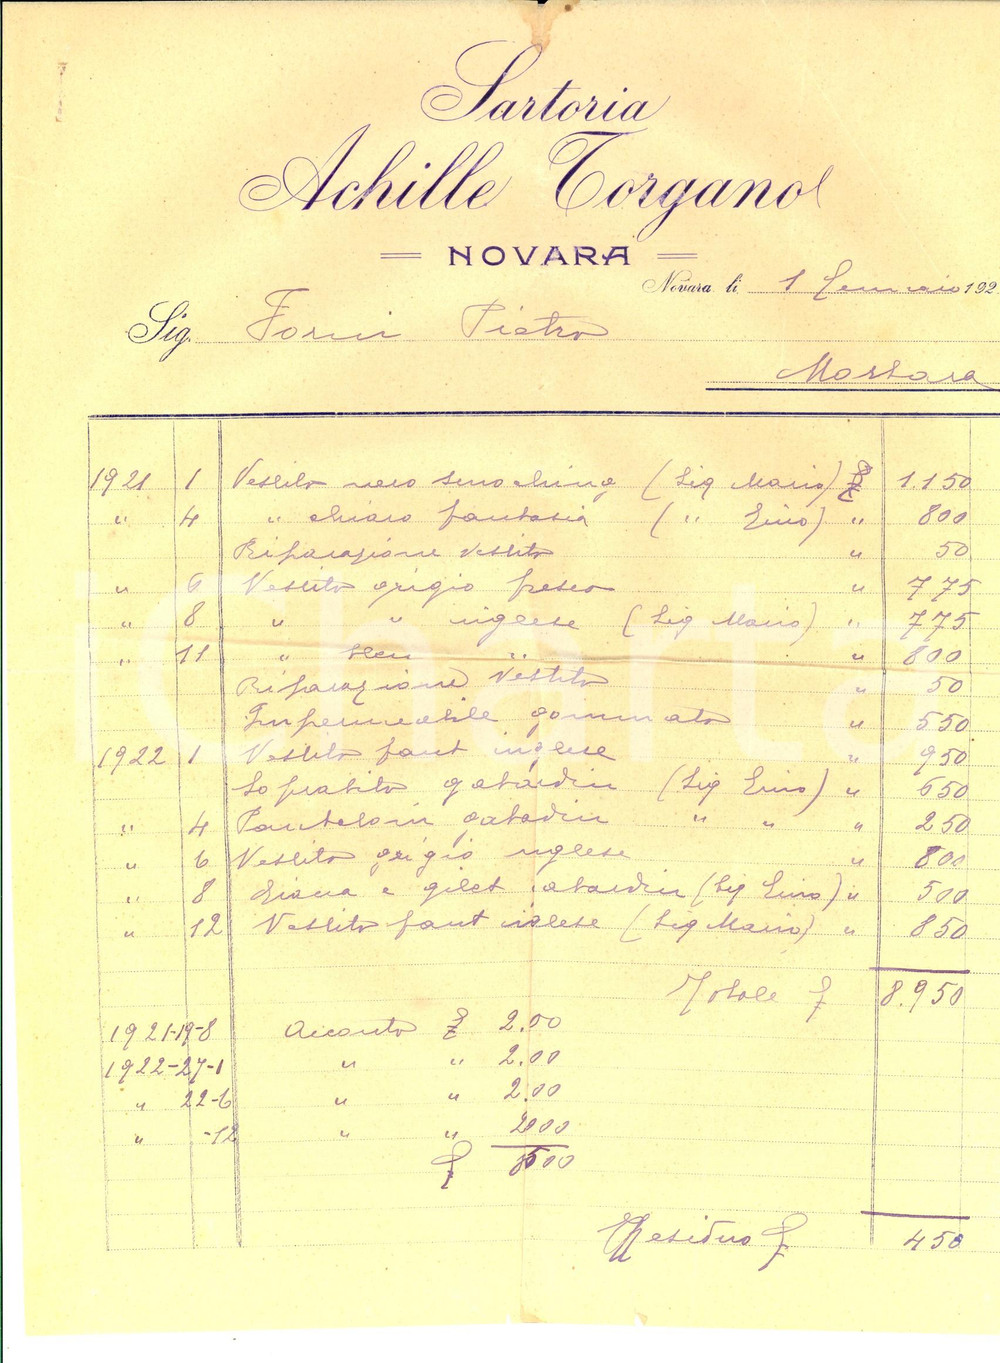 Sartoria
Achille Torgano
NOVARA
Novara li 1 Gennaio 192
Sig. Forni Pietro
Mortara
1921 1 Vestito nero smoching (Sig Mario) £ 1.150
" 4 " chiaro fantasia ( " Gino) " 800
Riparazione Vestito " 50
" 6 Vestito grigio fresco " 775
" 8 " " inglese (Sig Mario) " 775
" 11 " bleu " " 800
Riparazione Vestito " 50
Impermeabile gommato " 550
1922 1 Vestito fant inglese " 950
Soprabito gabardin (Sig Gino) " 650
" 4 Pantaloni gabardin " " " 250
" 6 Vestito grigio inglese " 800
" 8 Giacca e gilet gabardin (Sig Gino) " 500
" 12 Vestito fant inglese (Sig Mario) " 850
Totale £ 8.950
1921-19-8 Acconto £ 2.00
1922-27-1 " " 2.00
" 22-6 " " 2.00
" -12 " " 2000
£ 8500
Residuo £ 450